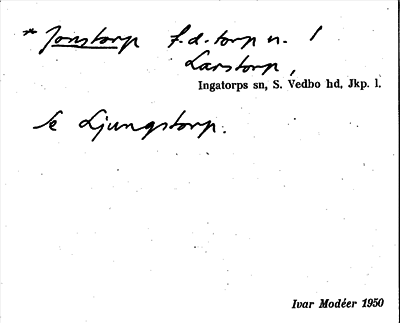 * Jonstorp f.d. torp u. /
Larstorp,
Ingatorps sn, S. Vedbo hd, Jkp. l.
Se Ljungstorp.
Ivar Modéer 1950